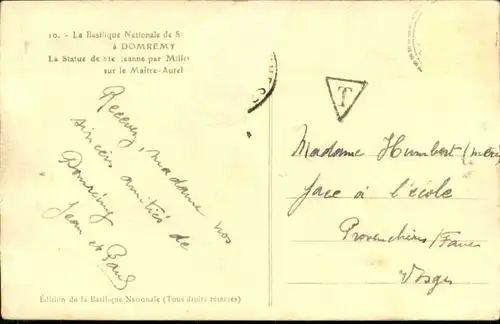 10. - La Basilique Nationale de S
à DOMREMY
La Statue de Ste Jeanne par Millet
sur le Maître-Autel
T
Recevez, madame nos
sincères amitiés de
Domrémy
Jean et Paul
Madame Humbert (mère)
face à l'école
Provenchères/Fave
Vosges
Édition de la Basilique Nationale (Tous droits réservés)